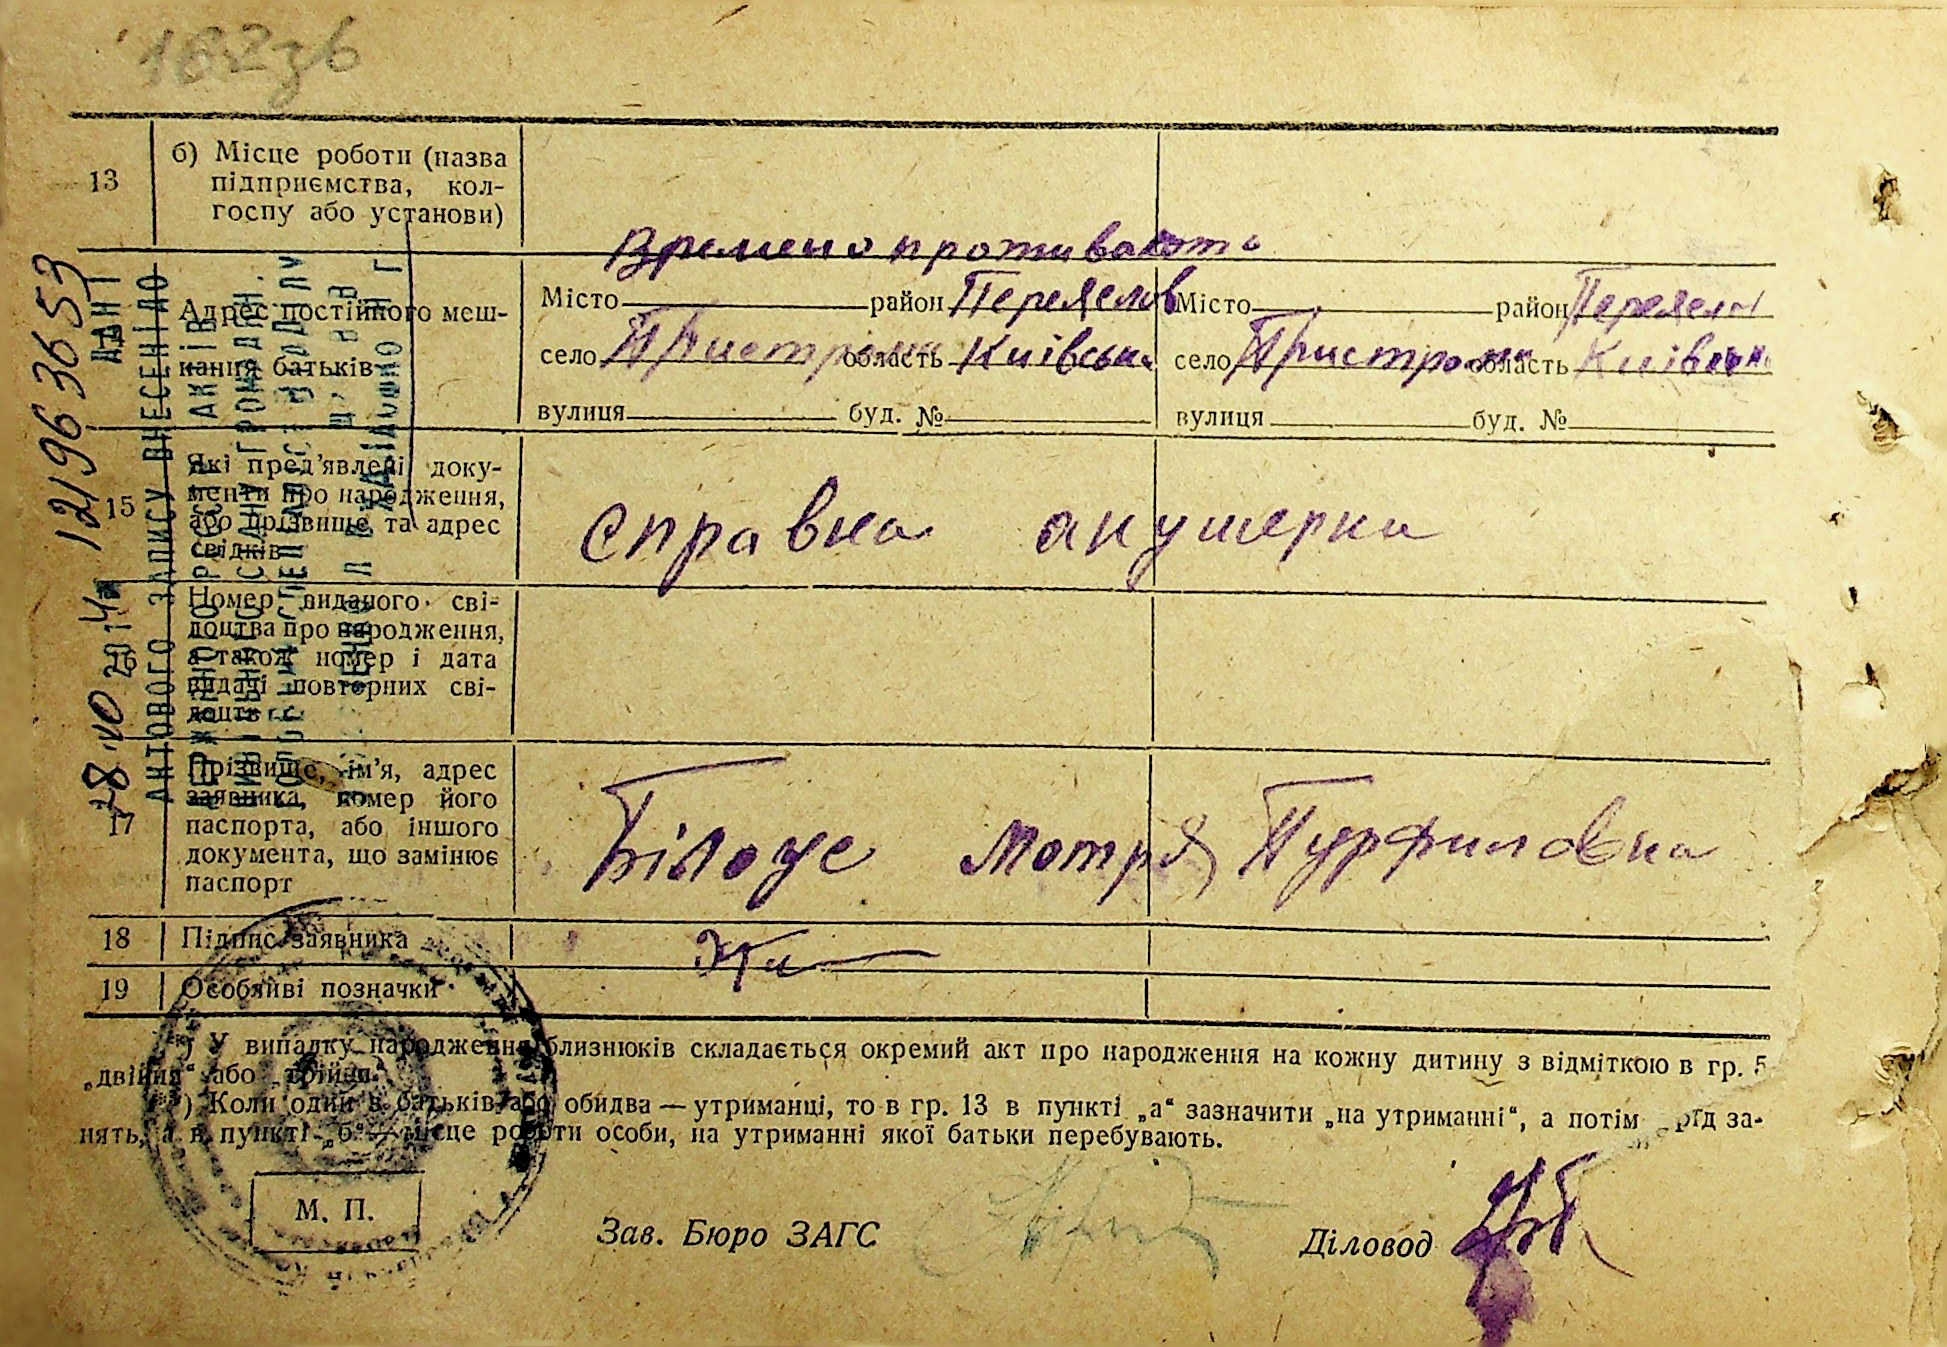 162зв
13
б) Місце роботи (назва
підприємства, кол-
госпу або установи)
Времено проживають
Адрес постійного меш-
кання батьків
Місто район Переяслов
село Пристроми область Київська
вулиця буд. №
Місто район Переяслов
село Пристроми область Київська
вулиця буд. №
15
Які пред'явлені доку-
менти про народження,
або прізвище та адрес
свідків
справка акушерка
16
Номер виданого сві-
доцтва про народження,
а також номер і дата
видачі повторних сві-
доцтв
17
Прізвище, ім'я, адрес
заявника, номер його
паспорта, або іншого
документа, що замінює
паспорт
Білоус Мотря Пурфиловна
18
Підпис заявника
19
Особливі позначки
) У випадку народження близнюків складається окремий акт про народження на кожну дитину з відміткою в гр. 5
„двійня“ або „трійня“.
) Коли один з батьків або обидва — утриманці, то в гр. 13 в пункті „а“ зазначити „на утриманні“, а потім рід за-
нять, а в пункті „б“ — місце роботи особи, на утриманні якої батьки перебувають.
М. П.
Зав. Бюро ЗАГС
Діловод
АКТОВОГО ЗАПИСУ ВНЕСЕНІ ДО
28.10 2014 12196 3653